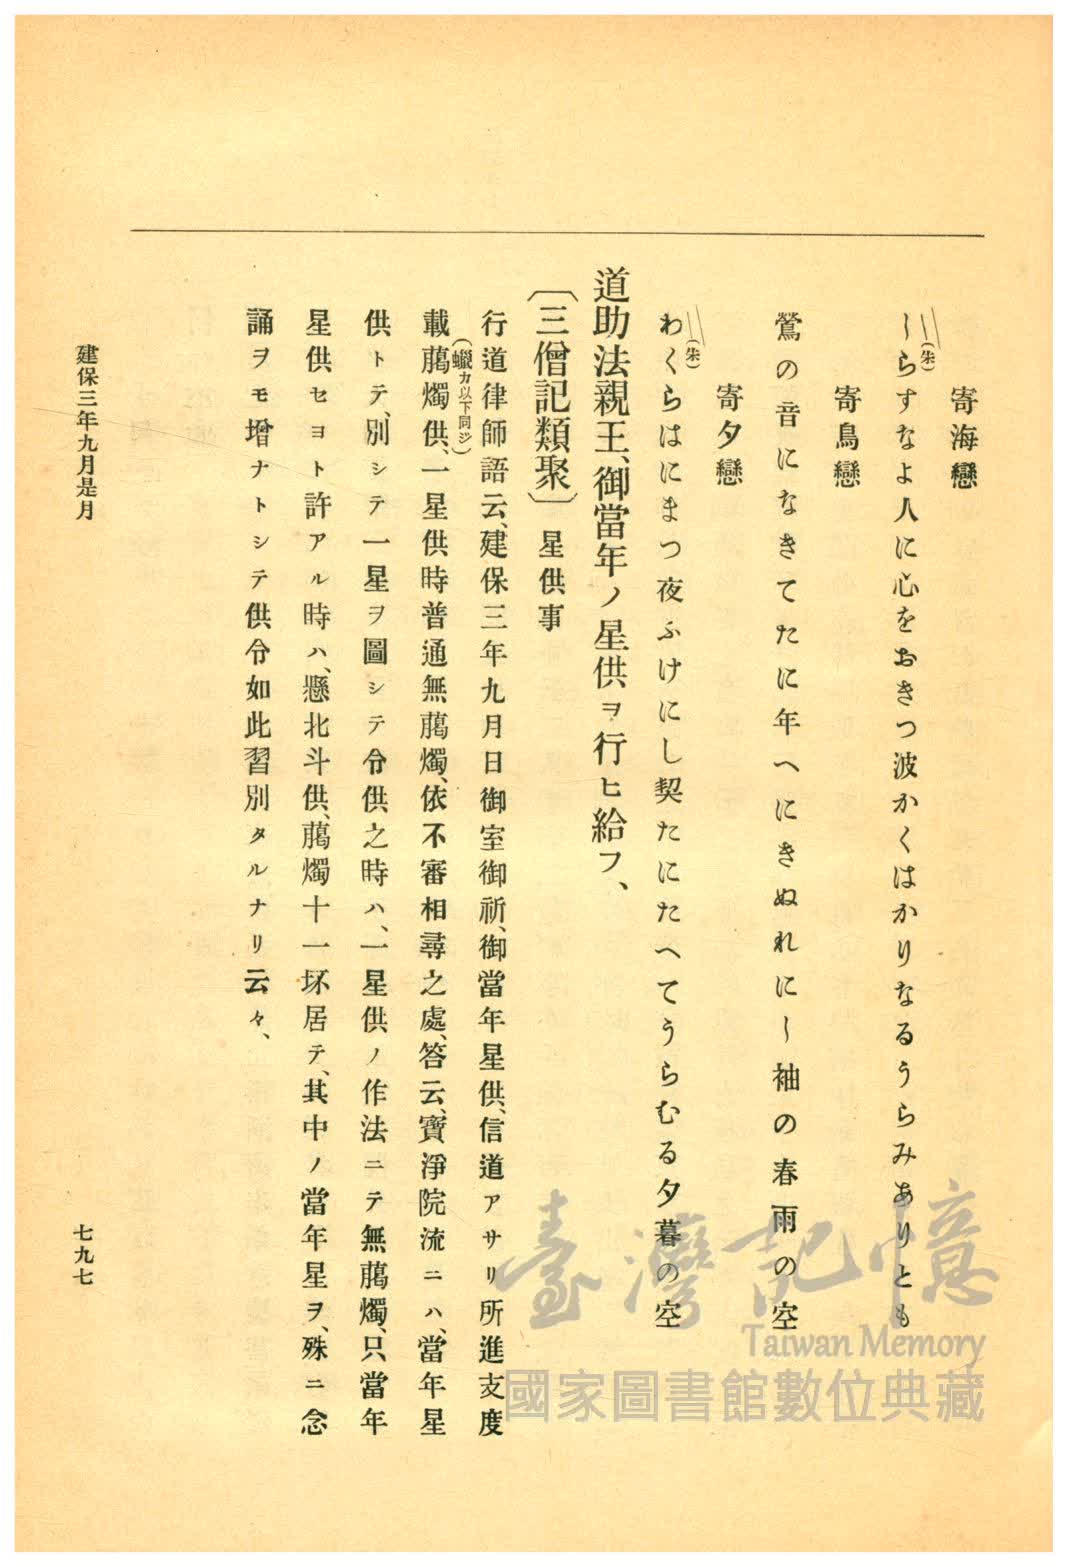 寄海戀
(朱)
しらすなよ人に心をおきつ波かくはかりなるうらみありとも
寄鳥戀
鶯の音になきてたに年へにきぬれにし袖の春雨の空
寄夕戀
(朱)
わくらはにまつ夜ふけにし契たにたへてうらむる夕暮の空
道助法親王、御當年ノ星供ヲ行ヒ給フ、
〔三僧記類聚〕星供事
行道律師語云、建保三年九月日御室御祈、御當年星供、信道アサリ所進支度
(蠟カ以下同ジ)
載䓶燭供、一星供時普通無䓶燭、依不審相尋之處、答云、寶淨院流ニハ、當年星
供トテ、別シテ一星ヲ圖シテ令供之時ハ、一星供ノ作法ニテ無䓶燭、只當年
星供セヨト許アル時ハ、懸北斗供、䓶燭十一坏居テ、其中ノ當年星ヲ、殊ニ念
誦ヲモ增ナトシテ供令如此習別タルナリ云々、
建保三年九月是月
七九七
臺灣記憶
Taiwan Memory
國家圖書館數位典藏